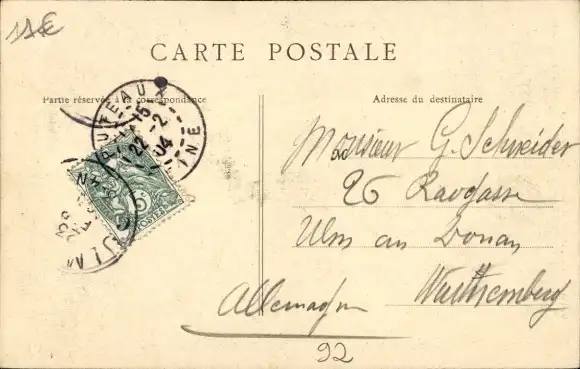 11€
CARTE POSTALE
Partie réservée à la correspondance
Adresse du destinataire
PUTEAUX
15
22-2
04
SEINE
5
POSTES
ULM
Monsieur G. Schneider
26 Ravgasse
Ulm an Donau
Wurthemberg
Allemagne
92